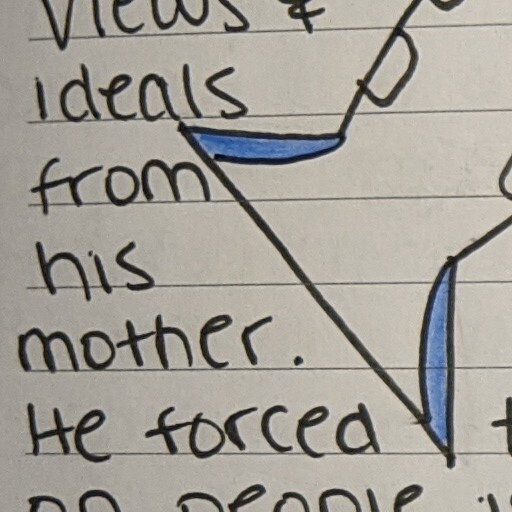 views &
ideals
from
his
mother.
He forced
on people